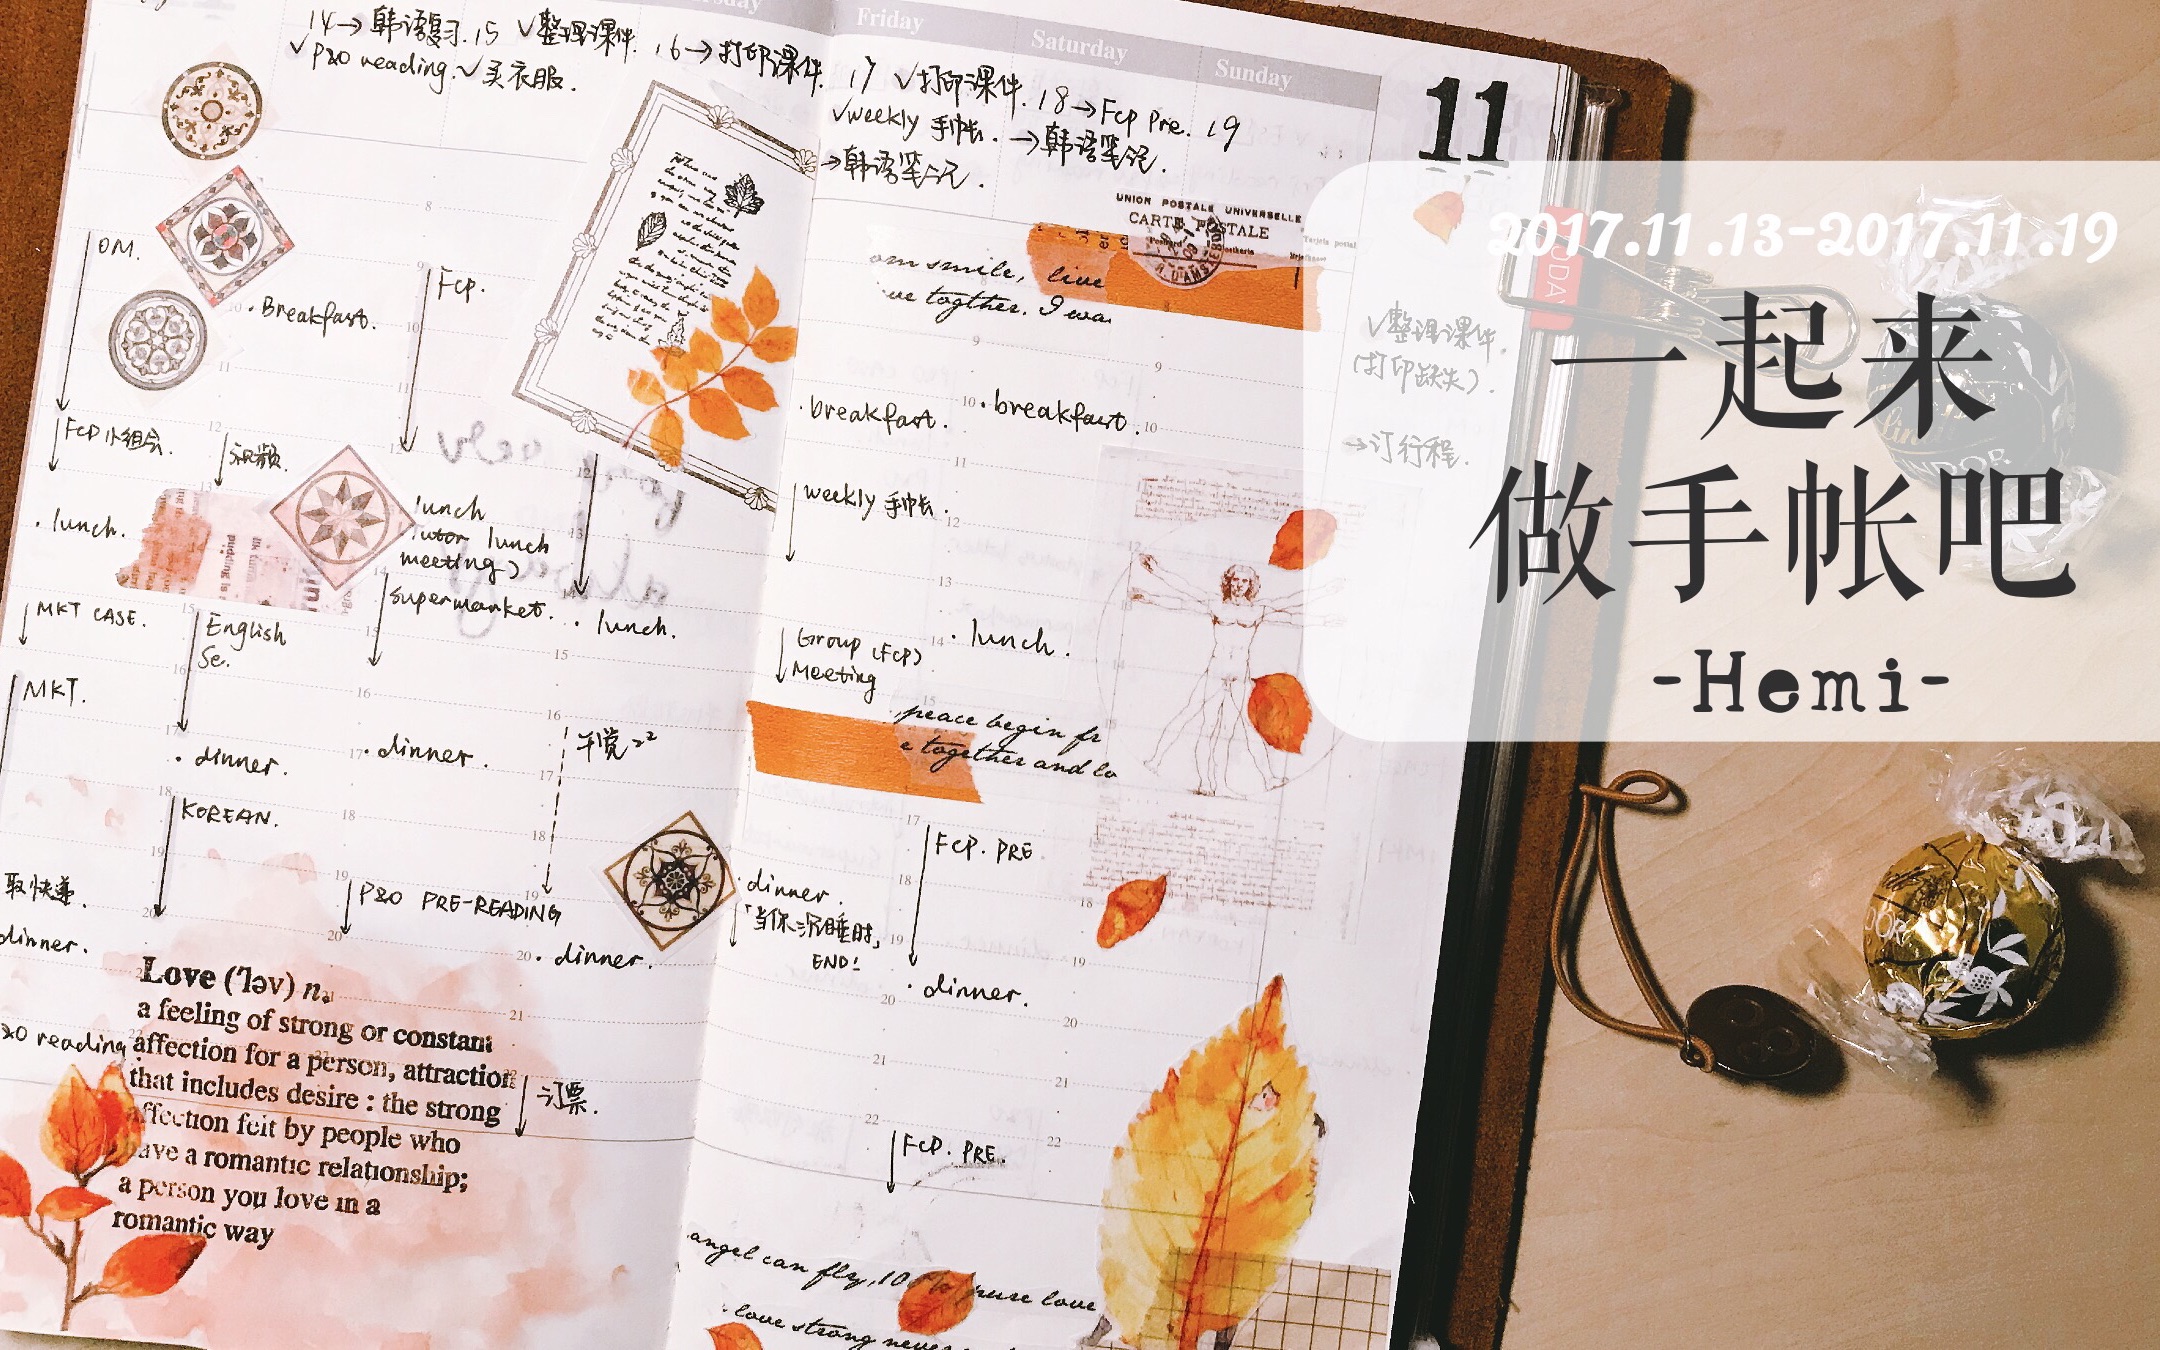 Friday
Saturday
Sunday
11
14→韩语复习.
✓P&O reading.
15 ✓整理课件.
✓买衣服.
16→打印课件.
17 ✓打印课件.
✓weekly 手帐.
→韩语笔记.
18→Fcp Pre.
→韩语笔记.
19
✓整理课件.
(打印缺失).
→订行程.
2017.11.13-2017.11.19
一起来
做手帐吧
-Hemi-
OM.
FCP 小组会.
·lunch.
MKT CASE.
MKT.
取快递.
dinner.
reading
·Breakfast.
视频.
English
Se.
·dinner.
KOREAN.
Fcp.
lunch
Tutor lunch
meeting)
supermarket.
·dinner.
P&O PRE-READING
·lunch.
·dinner.
订票.
UNION POSTALE UNIVERSELLE
CARTE POSTALE
om smile, live
ve togther. I wa
·breakfast.
weekly 手帐.
Group (FCP)
Meeting
peace begin fr
e together and lo
dinner.
「当你沉睡时」
END!
·breakfast.
·lunch.
FCP. PRE
·dinner.
FCP. PRE.
Love ('ləv) n.
a feeling of strong or constant
affection for a person, attraction
that includes desire : the strong
affection felt by people who
have a romantic relationship;
a person you love in a
romantic way
angel can fly, 100% pure love
love strong never